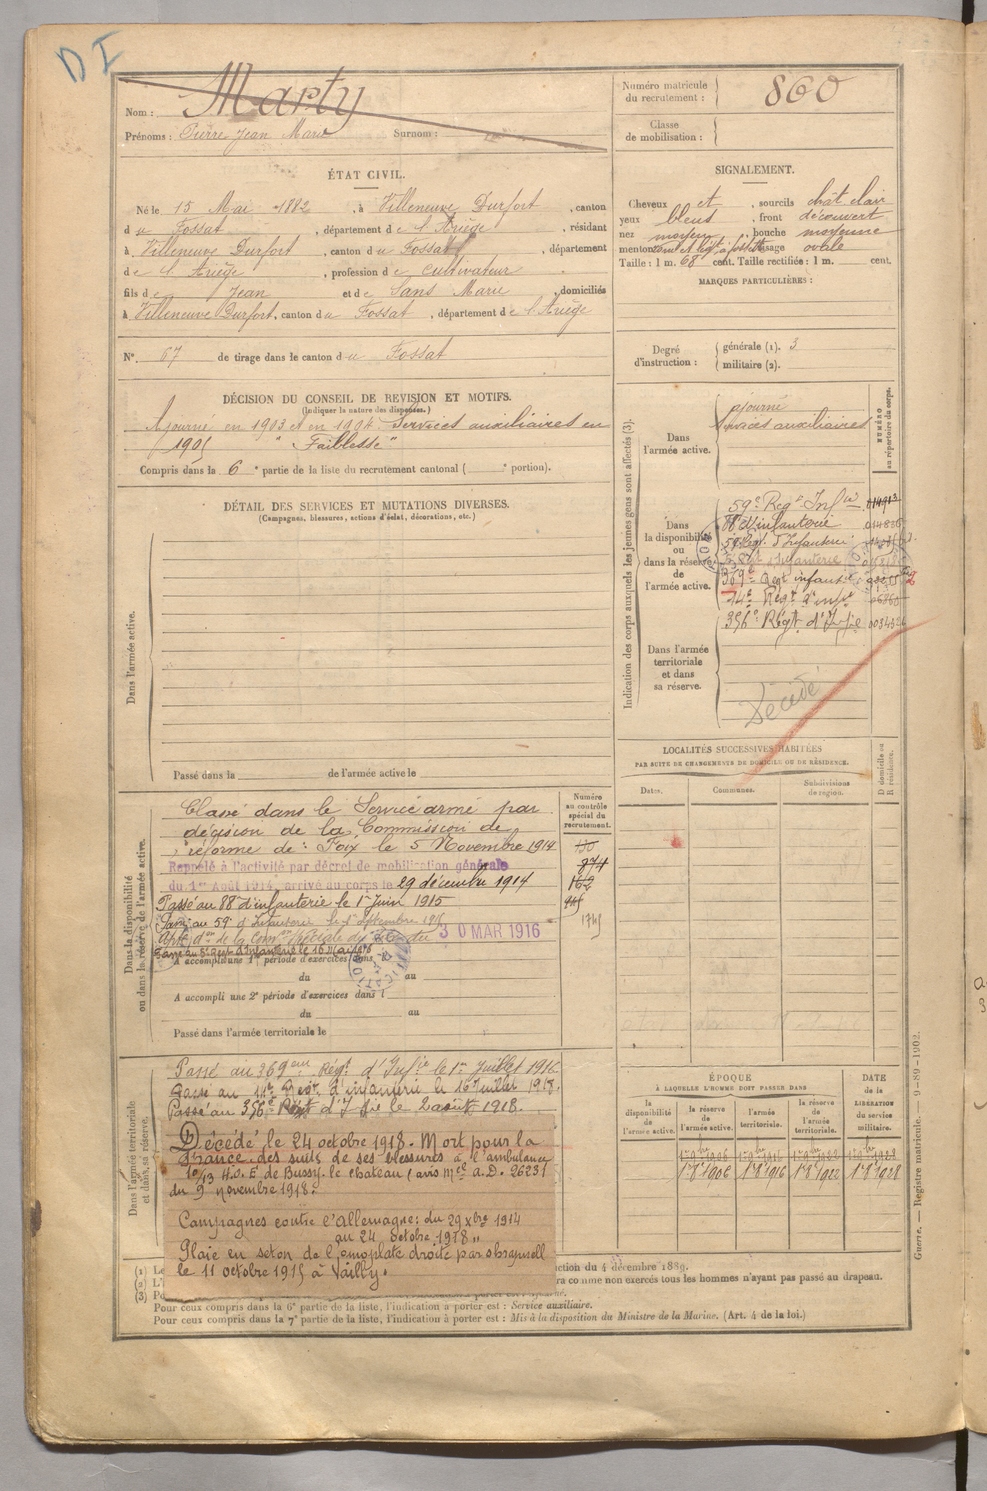 D I
Nom : Marty
Prénoms : Pierre Jean Marie Surnom :
Numéro matricule du recrutement : 860
Classe de mobilisation :
ÉTAT CIVIL.
Né le 15 Mai 1882, à Villeneuve Durfort, canton
du Fossat, département de l'Ariège, résidant
à Villeneuve Durfort, canton du Fossat, département
de l'Ariège, profession de cultivateur
fils de Jean et de Sans Marie, domiciliés
à Villeneuve Durfort, canton du Fossat, département de l'Ariège
N° 67 de tirage dans le canton du Fossat
SIGNALEMENT.
Cheveux et, sourcils chât clair
yeux bleus, front découvert
nez moyen, bouche moyenne
menton visage ovale
Taille : 1 m. 68 cent. Taille rectifiée : 1 m. cent.
MARQUES PARTICULIÈRES :
Degré d'instruction : générale (1). 3
militaire (2).
DÉCISION DU CONSEIL DE REVISION ET MOTIFS.
(Indiquer la nature des dispenses.)
Ajourné en 1903 et en 1904 Services auxiliaires en
1905 " Faiblesse "
Compris dans la 6e partie de la liste du recrutement cantonal ( e portion).
DÉTAIL DES SERVICES ET MUTATIONS DIVERSES.
(Campagnes, blessures, actions d'éclat, décorations, etc.)
Dans l'armée active.
Passé dans la de l'armée active le
Indication des corps auxquels les jeunes gens sont affectés (3).
NUMÉRO au répertoire du corps.
Dans l'armée active.
ajourné
Services auxiliaires
Dans la disponibilité ou dans la réserve de l'armée active.
59e Regt Infie
88e d'infanterie
59e Regt d'Infanterie
369e Regt infanterie
14e Regt d'infie
356e Régt d'Infie
Dans l'armée territoriale et dans sa réserve.
Décédé
LOCALITÉS SUCCESSIVES HABITÉES
PAR SUITE DE CHANGEMENTS DE DOMICILE OU DE RÉSIDENCE.
Dates. Communes. Subdivisions de région. D domicile ou R résidence.
Dans la disponibilité ou dans la réserve de l'armée active.
Numéro au contrôle spécial du recrutement.
Classé dans le Service armé par
décision de la Commission de
réforme de Foix le 5 Novembre 1914
Rappelé à l'activité par décret de mobilisation générale
du 1er Août 1914, arrivé au corps le 29 décembre 1914
Passé au 88e d'infanterie le 1er Juin 1915
Passé au 59e d'Infanterie le 1er Septembre 1915
30 MAR 1916
A accompli une 1re période d'exercices dans l
du au
A accompli une 2e période d'exercices dans l
du au
Passé dans l'armée territoriale le
874
162
Dans l'armée territoriale et dans sa réserve.
Passé au 369eme Régt d'Infie le 1er Juillet 1916
Passé au 14e Régt d'infanterie le 16 Juillet 1918.
Passé au 356e Régt d'Infie le 2 août 1918.
Décédé le 24 octobre 1918. Mort pour la
France. des suites de ses blessures à l'ambulance
10/13 H.O.E de Bussy. le chateau (avis Mel a.D. 26231
du 9 novembre 1918.
Campagnes contre l'Allemagne : du 29 Xbre 1914
au 24 octobre 1918 "
Plaie en seton de l'omoplate droite par shrapnell
le 11 octobre 1915 à Vailly.
ÉPOQUE
À LAQUELLE L'HOMME DOIT PASSER DANS
DATE de la LIBÉRATION du service militaire.
la disponibilité de l'armée active. la réserve de l'armée active. l'armée territoriale. la réserve de l'armée territoriale.
1er 8bre 1906 1er 8bre 1916 1er 8bre 1922 1er 8bre 1928
(1) Le
ction du 4 décembre 1889.
(2) L'i
ra comme non exercés tous les hommes n'ayant pas passé au drapeau.
(3) Po
Pour ceux compris dans la 6e partie de la liste, l'indication à porter est : Service auxiliaire.
Pour ceux compris dans la 7e partie de la liste, l'indication à porter est : Mis à la disposition du Ministre de la Marine. (Art. 4 de la loi.)
Guerre. — Registre matricule. — 9-89-1902.